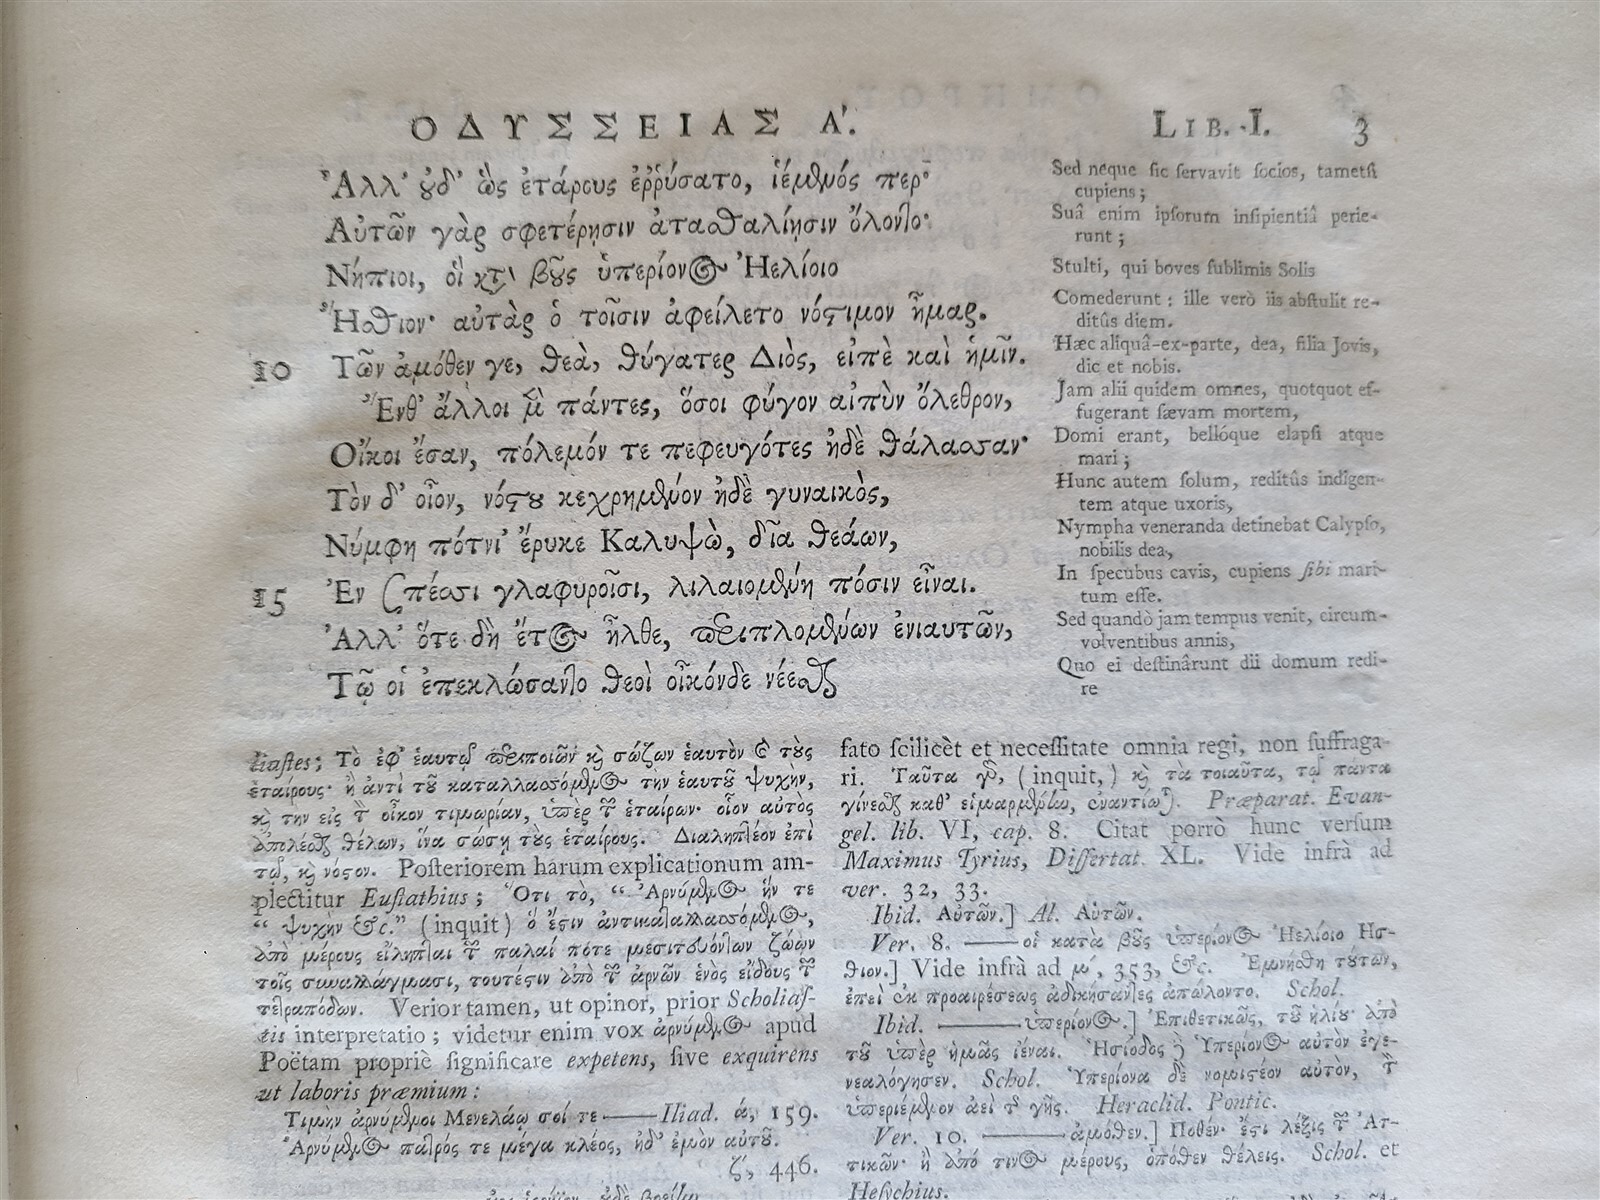 ΟΔΥΣΣΕΙΑΣ Α'. LIB. I. 3
Ἀλλ' οὐδ' ὣς ἑτάρους ἐῤῥύσατο, ἱέμενός περ·
Αὐτῶν γὰρ σφετέρῃσιν ἀτασθαλίῃσιν ὄλοντο·
Νήπιοι, οἳ κατὰ βοῦς ὑπερίονος Ἠελίοιο
Ἤσθιον· αὐτὰρ ὁ τοῖσιν ἀφείλετο νόστιμον ἦμαρ.
10 Τῶν ἁμόθεν γε, θεὰ, θύγατερ Διὸς, εἰπὲ καὶ ἡμῖν.
Ἔνθ' ἄλλοι μὲν πάντες, ὅσοι φύγον αἰπὺν ὄλεθρον,
Οἴκοι ἔσαν, πόλεμόν τε πεφευγότες ἠδὲ θάλασσαν·
Τὸν δ' οἶον, νόστου κεχρημένον ἠδὲ γυναικὸς,
Νύμφη πότνι' ἔρυκε Καλυψὼ, δῖα θεάων,
15 Ἐν σπέσσι γλαφυροῖσι, λιλαιομένη πόσιν εἶναι.
Ἀλλ' ὅτε δὴ ἔτος ἦλθε, περιπλομένων ἐνιαυτῶν,
Τῷ οἱ ἐπεκλώσαντο θεοὶ οἶκόνδε νέεσθαι
Sed neque sic servavit socios, tametsi
cupiens;
Suâ enim ipsorum insipientiâ perie-
runt;
Stulti, qui boves sublimis Solis
Comederunt: ille verò iis abstulit re-
ditûs diem.
Hæc aliquâ-ex-parte, dea, filia Jovis,
dic et nobis.
Jam alii quidem omnes, quotquot ef-
fugerant sævam mortem,
Domi erant, bellóque elapsi atque
mari;
Hunc autem solum, reditûs indigen-
tem atque uxoris,
Nympha veneranda detinebat Calypso,
nobilis dea,
In specubus cavis, cupiens sibi mari-
tum esse.
Sed quandò jam tempus venit, circum-
volventibus annis,
Quo ei destinârunt dii domum redi-
re
liastes; Τὸ ἐφ' ἑαυτῷ περιποιῶν καὶ σώζων ἑαυτὸν καὶ τοὺς
ἑταίρους· ἢ ἀντὶ τοῦ καταλλασσόμενος την ἑαυτοῦ ψυχὴν,
καὶ την εἰς τὸν οἶκον τιμωρίαν, ὑπὲρ τῶν ἑταίρων· οἷον αὐτὸς
ἀπολέσθαι θέλων, ἵνα σώσῃ τοὺς ἑταίρους. Διαληπτέον ἐπὶ
τῷ, καὶ νόστον. Posteriorem harum explicationum am-
plectitur Eustathius; Ὅτι τὸ, “ Ἀρνύμενος ἥν τε
“ ψυχὴν &c.” (inquit) ὅ ἐστιν ἀντικαταλλασσόμενος,
ἀπὸ μέρους εἴληπται τῶν παλαί ποτε μεσιτευόντων ζώων
τοῖς συναλλάγμασι, τουτέστιν ἀπὸ τῶν ἀρνῶν ἑνὸς εἴδους τῶν
τετραπόδων. Verior tamen, ut opinor, prior Scholias-
tis interpretatio; videtur enim vox ἀρνύμενος apud
Poëtam propriè significare expetens, sive exquirens
ut laboris præmium:
Τιμὴν ἀρνύμενοι Μενελάῳ σοί τε—— Iliad. ά, 159.
Ἀρνύμενος πατρός τε μέγα κλέος, ἠδ' ἐμον αὐτοῦ.
ζ, 446.
fato scilicèt et necessitate omnia regi, non suffraga-
ri. Ταῦτα γὰρ, (inquit,) καὶ τὰ τοιαῦτα, τῷ πάντα
γίνεσθαι καθ' εἱμαρμένην, ἐναντιῶται. Præparat. Evan-
gel. lib. VI, cap. 8. Citat porrò hunc versum
Maximus Tyrius, Dissertat. XL. Vide infrà ad
ver. 32, 33.
Ibid. Αὐτῶν.] Al. Αὑτῶν.
Ver. 8. ——οἱ κατὰ βοῦς ὑπερίονος Ἠελίοιο Ησ-
θιον.] Vide infrà ad μ', 353, &c. Ἐμνήσθη τούτων,
ἐπεὶ ἐκ προαιρέσεως ἀδικήσαντες ἀπώλοντο. Schol.
Ibid. ——ὑπερίονος.] Ἐπιθετικῶς, τοῦ ἡλίου ἀπὸ
τοῦ ὑπὲρ ἡμᾶς ἰέναι. Ἡσίοδος δὲ Ὑπερίονος αὐτὸν ἐγε-
νεαλόγησεν. Schol. Ὑπερίονα δὲ νομιστέον αὐτὸν, τὸν
ὑπεριέμενον ἀεὶ τῆς γῆς. Heraclid. Pontic.
Ver. 10. ——ἁμόθεν.] Ποθέν· ἔστι λέξις τῶν Ἀτ-
τικῶν· ἢ ἀπό τινος μέρους, ὁπόθεν θέλεις. Schol. et
Hesychius.